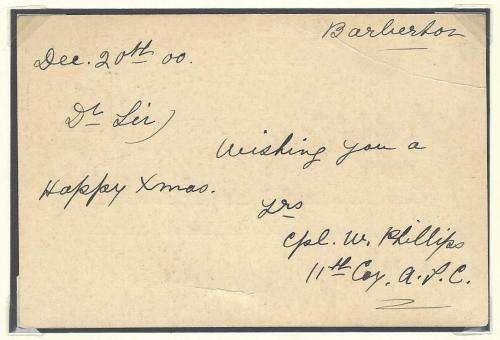 Barberton
Dec. 20th 00.
Dr Sir,
Wishing you a
Happy Xmas.
yrs
Cpl. W. Phillips
11th Coy. A.S.C.